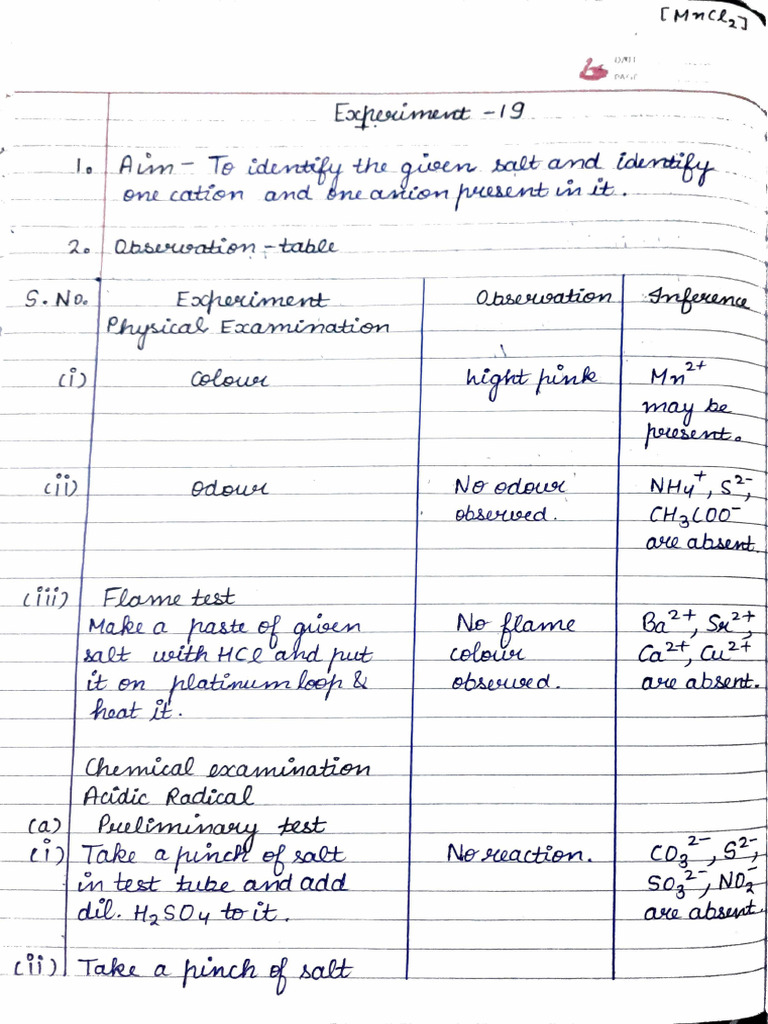 [MnCl2]
DATE
PAGE
Experiment - 19
1. Aim - To identify the given salt and identify
one cation and one anion present in it.
2. Observation - table
S. No. Experiment Observation Inference
Physical Examination
(i) Colour Light pink Mn2+
may be
present.
(ii) Odour No odour NH4+, S2-,
observed. CH3COO-
are absent.
(iii) Flame test
Make a paste of given No flame Ba2+, Sr2+,
salt with HCl and put colour Ca2+, Cu2+
it on platinum loop & observed. are absent.
heat it.
Chemical examination
Acidic Radical
(a) Preliminary test
(i) Take a pinch of salt No reaction. CO3 2-, S2-,
in test tube and add SO3 2-, NO2-
dil. H2SO4 to it. are absent
(ii) Take a pinch of salt